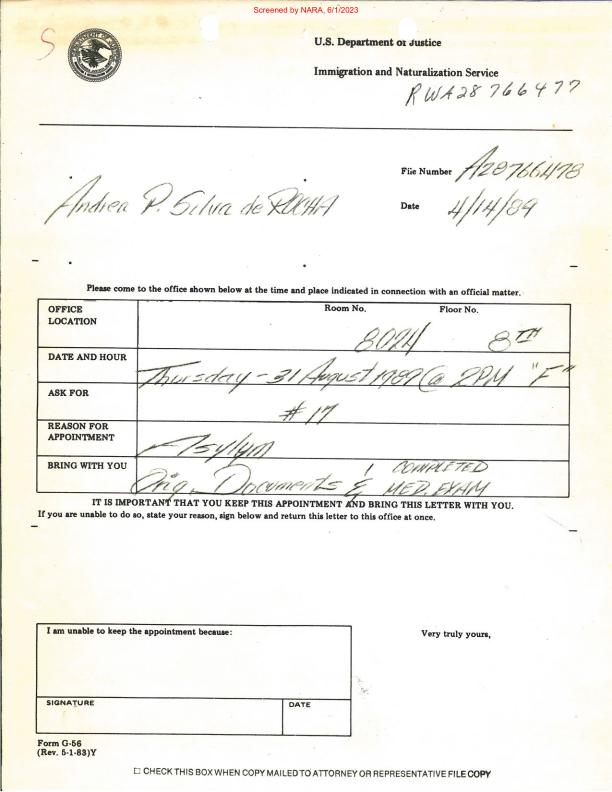 Screened by NARA, 6/1/2023
S
U.S. Department of Justice
Immigration and Naturalization Service
RWA28 766477
File Number A28766478
Andrea P. Silva de ROCHA
Date 4/14/89
Please come to the office shown below at the time and place indicated in connection with an official matter.
OFFICE LOCATION
Room No. Floor No.
8024 8TH
DATE AND HOUR
Thursday - 31 August 1989 @ 2PM "F"
ASK FOR
# 17
REASON FOR APPOINTMENT
Asylym
BRING WITH YOU
Orig. Documents & COMPLETED MED. EXAM
IT IS IMPORTANT THAT YOU KEEP THIS APPOINTMENT AND BRING THIS LETTER WITH YOU.
If you are unable to do so, state your reason, sign below and return this letter to this office at once.
I am unable to keep the appointment because:
Very truly yours,
SIGNATURE
DATE
Form G-56
(Rev. 5-1-83)Y
☐ CHECK THIS BOX WHEN COPY MAILED TO ATTORNEY OR REPRESENTATIVE FILE COPY